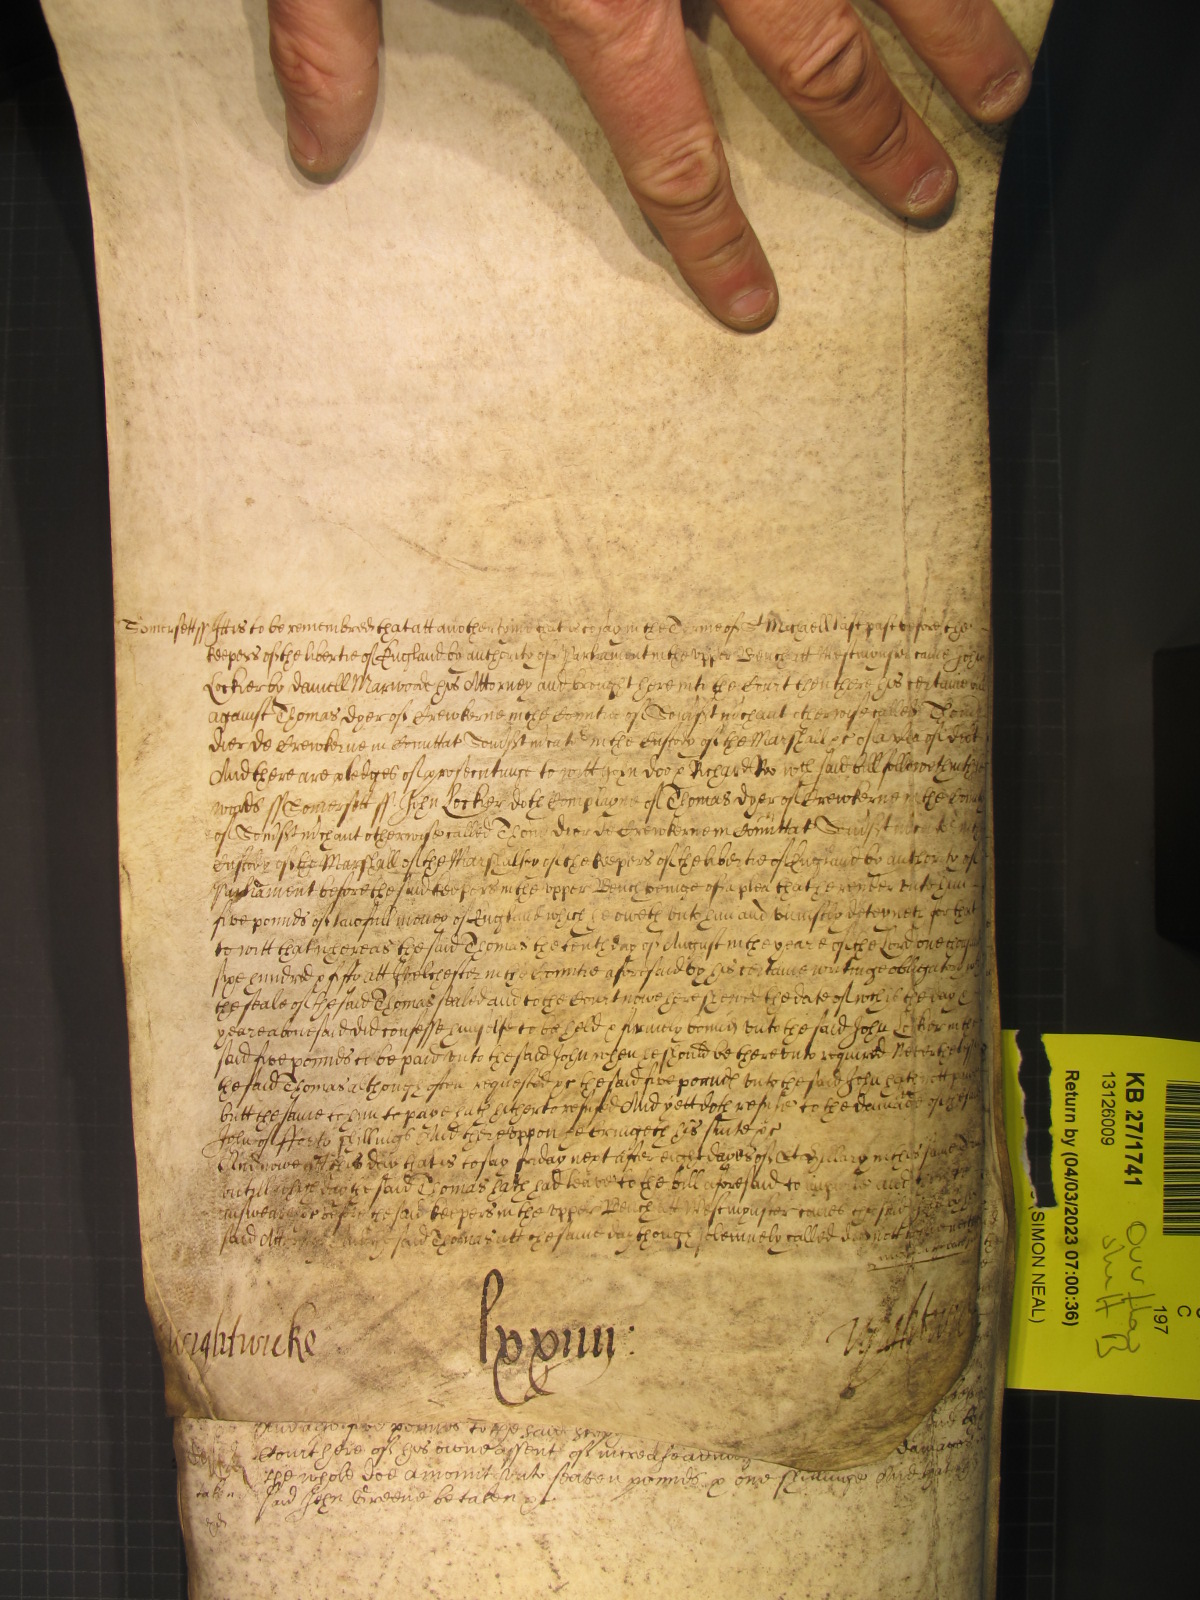 Somersett ss Itt is to be remembred that att another tyme that is to say in the Terme of St Michaell last past before the
keepers of the libertie of England by authority of Parliament in the upper Bench att Westminster came John
Lockier by daniell Marwood his Attorney and brought here into the Court then there his certaine bill
against Thomas dyer of Crewkerne in the Countie of Somst mchant otherwise called Thom
dier de Crewkerne in Comittat Somst mcator in the Custody of the Marshall &c of a plea of debt
And there are pledges of prosecutinge to witt John doo & Richard Roo wch said bill followeth in these
words ss Somersett ss John Lockier doth Complayne of Thomas dyer of Crewkerne in the County
of Somst mchant otherwise called Thom dier de Crewkerne in Comittat Somst mcator in the
Custody of the Marshall of the Marshalsey of the keepers of the libertie of England by authority of
Parliament before the said keepers in the upper Bench beinge of a plea that he render unto him
five pounds of lawfull money of England which he oweth unto him and uniustly deteyneth for that
to witt that whereas the said Thomas the tenth day of August in the yeare of the Lord one thous
sixe hundred & fifty att Ivelchester in the Countie aforesaid by his certaine writinge obligatory
the seale of the said Thomas sealed and to the Court now here shewed the date of wch is the day &
yeare abovesaid did confesse himselfe to be held & firmely bound unto the said John Lockier in the
said five pounds to be paid unto the said John when he should be thereunto required Neverthelesse
the said Thomas although often requested &c the said five pounds unto the said John hath nott paid
butt the same to him to paye hath hitherto refused And yett doth refuse to the damage of the said
John of fforty shillings And thereuppon he bringeth his suite &c
And nowe att this day that is to say friday next after eight dayes of St Hillary in this same Terme
untill which day the said Thomas hath had leave to the bill aforesaid to imparle and then to
answeare &c before the said keepers in the upper Bench att Westminster comes the said John by his
said Attorney And the said Thomas att the same day though solemnely called doth nott come nor
Wightwicke
lxxiiii:
Wightwick
five pounds to the said
Court here of his owne assent of increase
damages
the whole doe amount unto seaven pounds & one shillinge And
taken
said John Greene be taken &c
KB 27/1741
13126009
Return by (04/03/2023 07:00:36)
(SIMON NEAL)
197
C